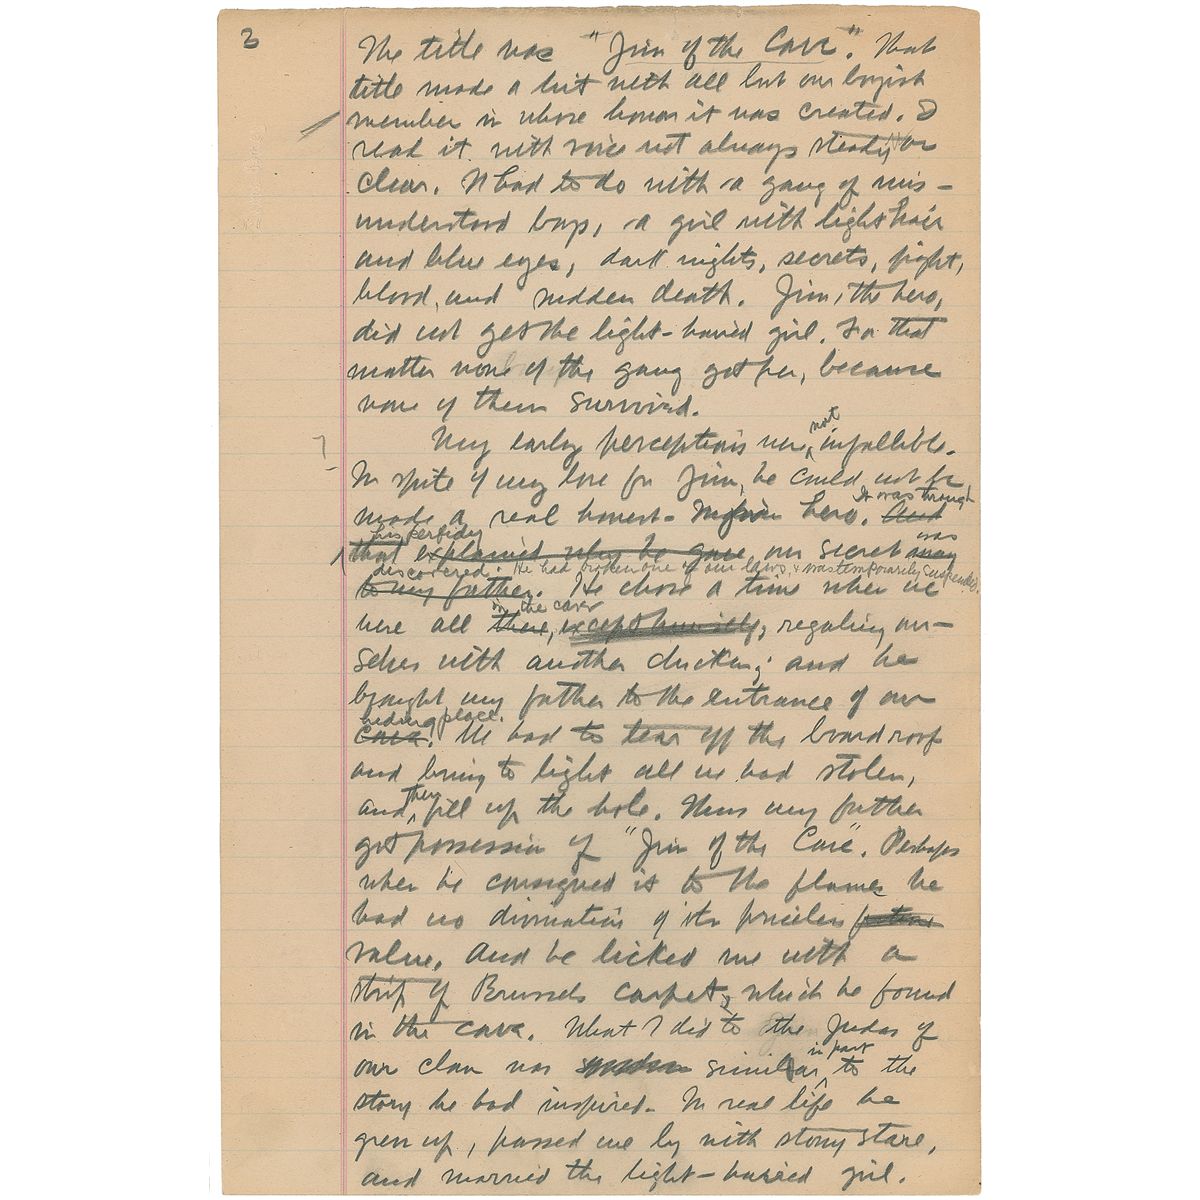 3
The title was "Jim of the Cave". That
title made a hit with all but our boyish
member in whose honor it was created. I
read it with voice not always steady or
clear. It had to do with a gang of mis-
understood boys, a girl with light hair
and blue eyes, dark nights, secrets, fight,
blood, and sudden death. Jim, the hero,
did not get the light-haired girl. For that
matter none of the gang got her, because
none of them survived.
My early perceptions were not infallible.
In spite of my love for Jim, he could not be
made a real honest- hero. And It was through
his perfidy
that explained why he gave our secret away was
discovered. He had broken one of our laws, & was temporarily suspended.
to my father. He chose a time when we
in the cave
were all there, except himself, regaling our-
selves with another chicken; and he
brought my father to the entrance of our
hiding place.
cave. We had to tear off the board roof
and bring to light all we had stolen,
and then fill up the hole. Thus my father
got possession of "Jim of the Cave". Perhaps
when he consigned it to the flames he
had no divination of its priceless future
value. And he licked me with a
strip of Brussels carpet, which he found
in the cave. What I did to the Judas of
our clan was similar in part to the
story he had inspired. In real life he
grew up, passed me by with stony stare,
and married the light-haired girl.